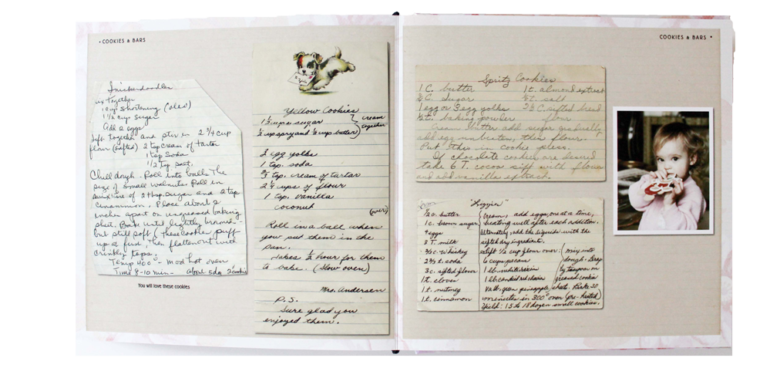 COOKIES & BARS
Snickerdoodles
mix together
1 cup shortening (oleo)
1 1/2 cup sugar
Add 2 eggs
Sift together and stir in 2 3/4 cup
flour (sifted) 2 tsp cream of tartar
1 tsp soda
1/2 tsp salt
Chill dough. Roll into balls the
size of small walnuts. Roll in
mixture of 2 tbsp sugar and 2 tsp
cinnamon. Place about 2
inches apart on ungreased baking
sheet. Bake until lightly brown
but still soft (these cookies puff
up at first, then flatten out with
crinkly tops).
Temp 400° - Mod hot oven
Time 8-10 min - about 5 doz cookies
You will love these cookies
Yellow Cookies
cups sugar
cream
together
2 egg yolks
1 tsp. soda
tsp. cream of tartar
cups of flour
1 tsp. vanilla
coconut
(over)
Roll in a ball when
you put them in the
pan.
Takes hour for them
to bake. (slow oven)
Mrs. Anderson
P.S.
Sure glad you
enjoyed them.
COOKIES & BARS
Spritz Cookies
1 C. butter 1 t. almond extract
C. sugar t. salt
1 egg or 3 egg yolks C sifted
t. baking powder flour
Cream butter add sugar gradually
add egg
Put thru a cookie press.
If chocolate cookies are desired
take 6 T. cocoa sift with flour
and add vanilla extract.
butter
1 c. brown sugar
4 eggs
3 T. milk
c. whiskey
t. soda
3 c. sifted flour
1 t. cloves
1 t. nutmeg
1 t. cinnamon
Cream, add eggs, one at a time,
beating well after each addition.
Alternately add the liquids with the
sifted dry ingredients.
cup flour over
6 cups pecans
1 lb. white raisins
1 lb. candied
mix into
dough. Drop
by teaspoon on
greased cookie
sheets. Bake 20
minutes in 300° oven (pre-heated)
Yield: dozen small cookies.